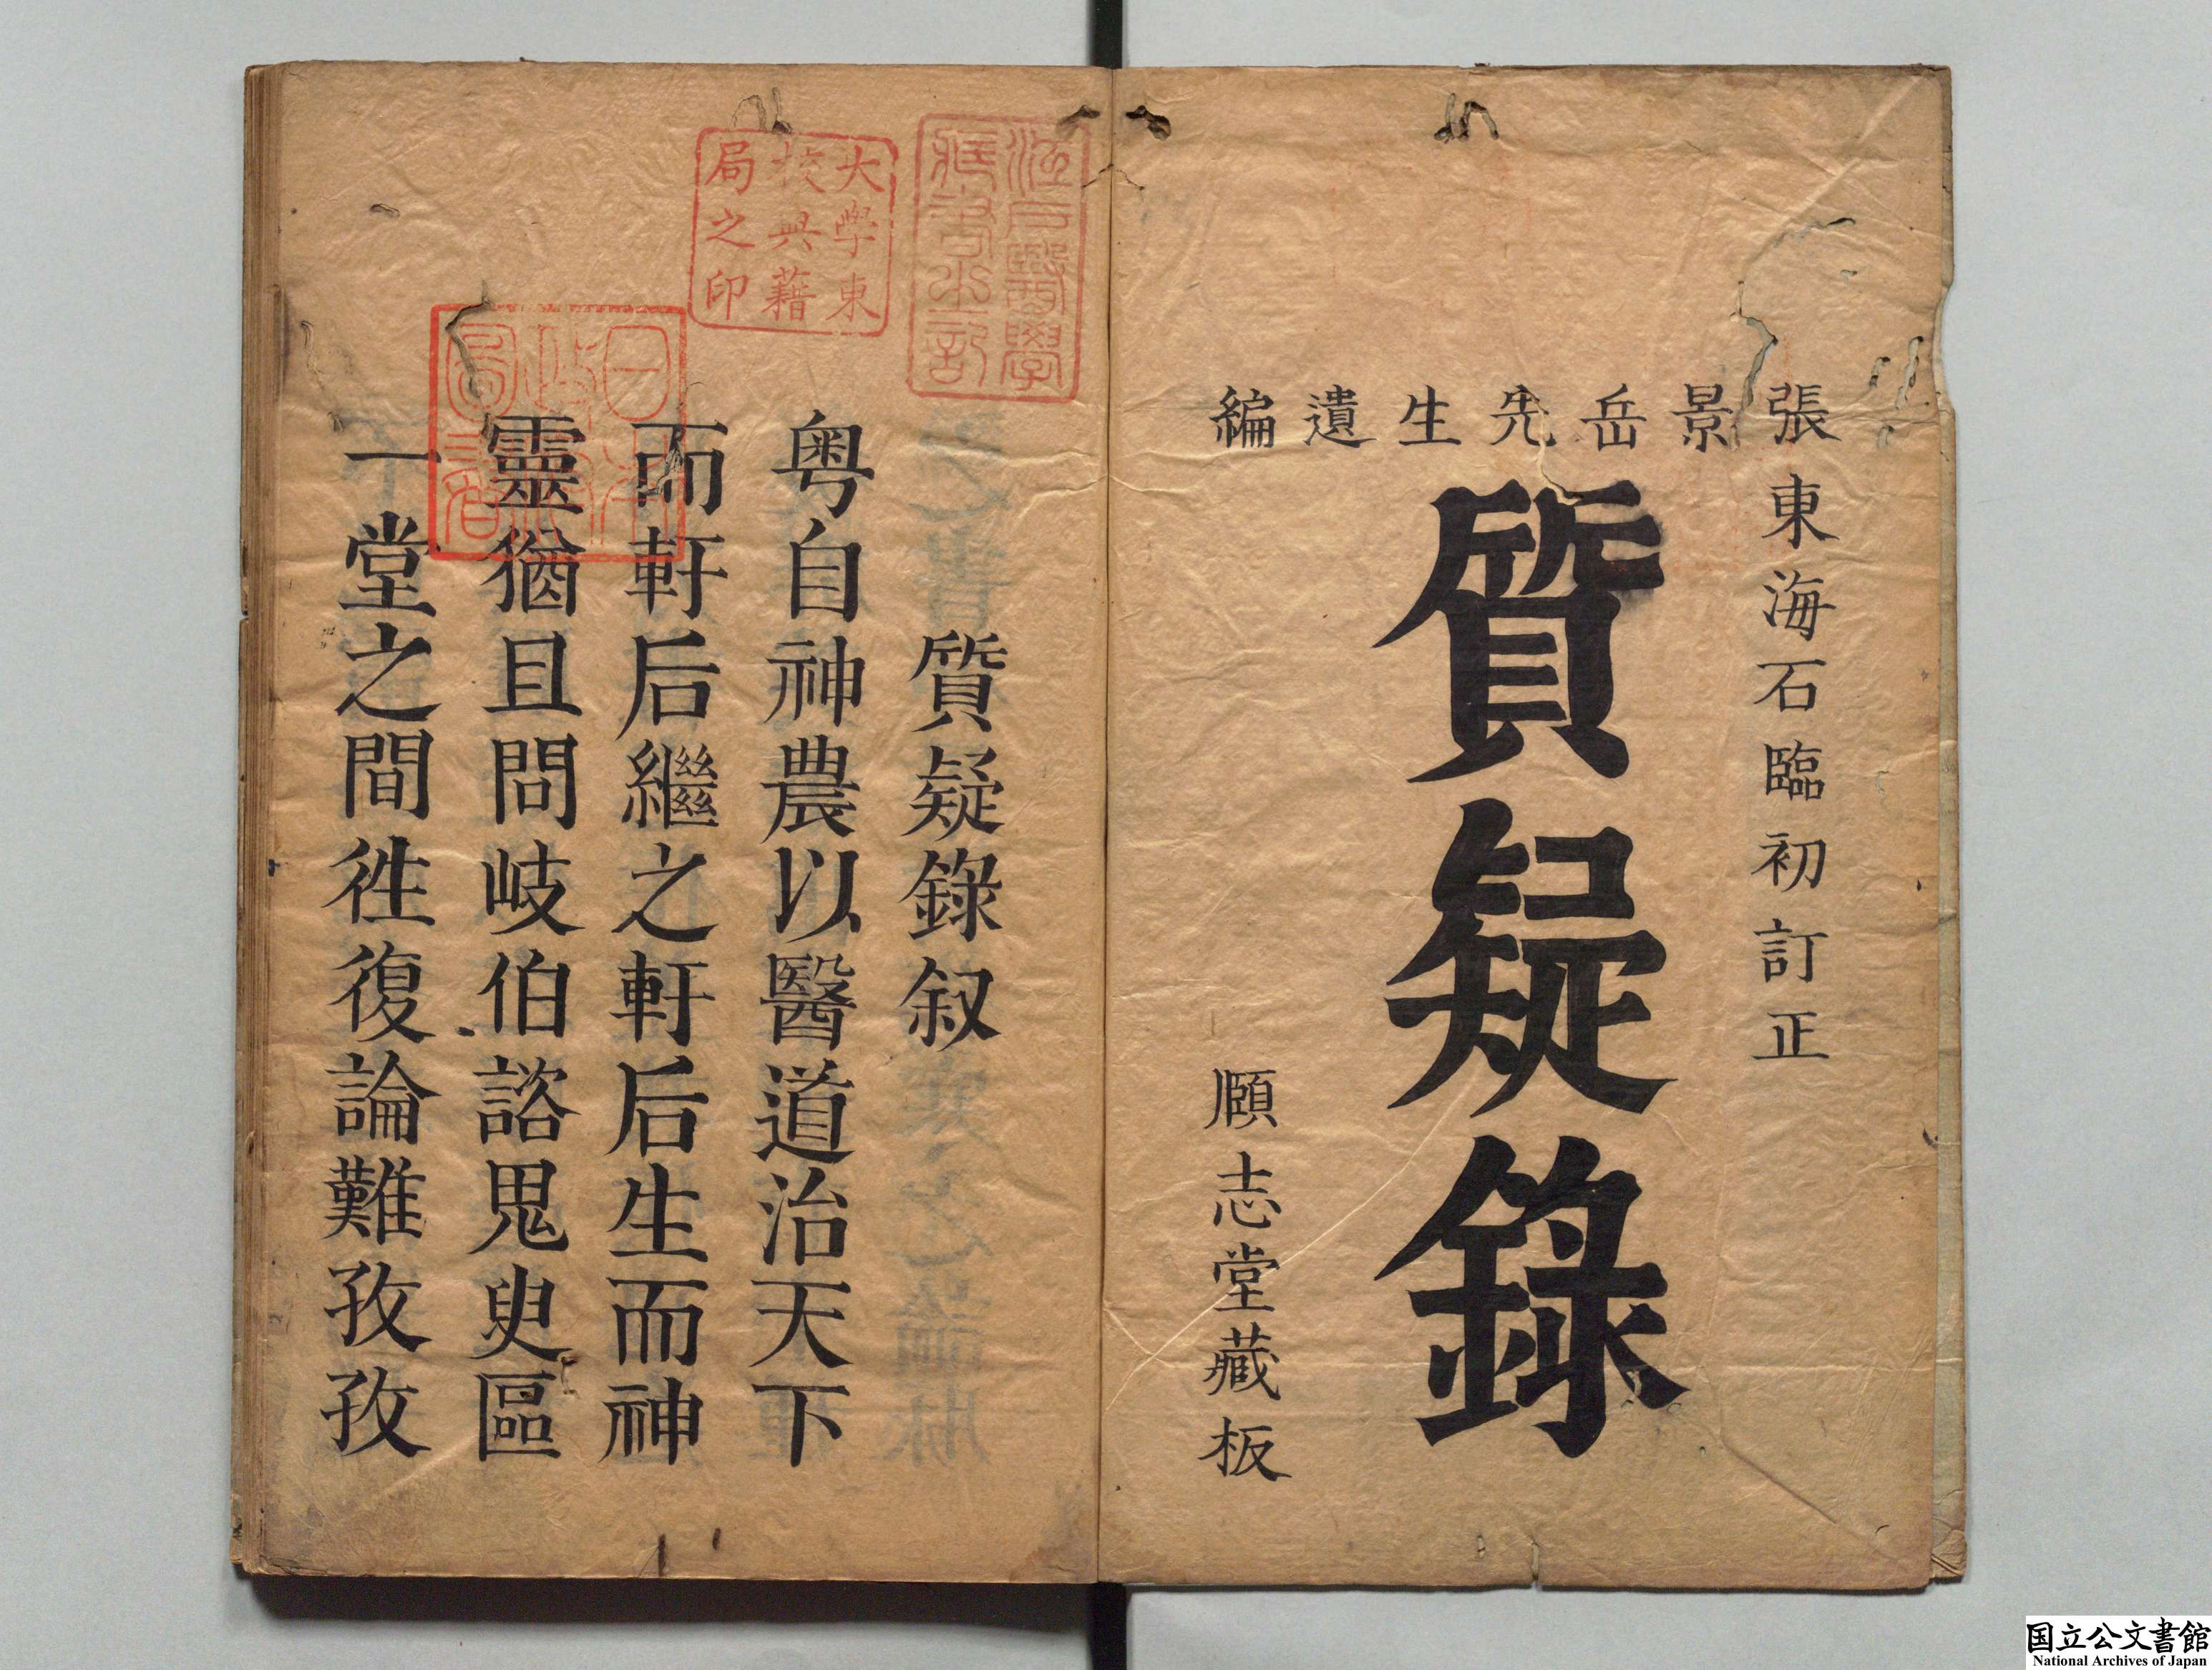 張景岳先生遺編
東海石臨初訂正
質疑錄
願志堂藏板
江戸醫學
藏書之記
大學東
校典藉
局之印
日本
政府
圖書
質疑錄叙
粤自神農以醫道治天下
而軒后繼之軒后生而神
靈猶且問岐伯諮鬼臾區
一堂之間徃復論難孜孜
国立公文書館
National Archives of Japan